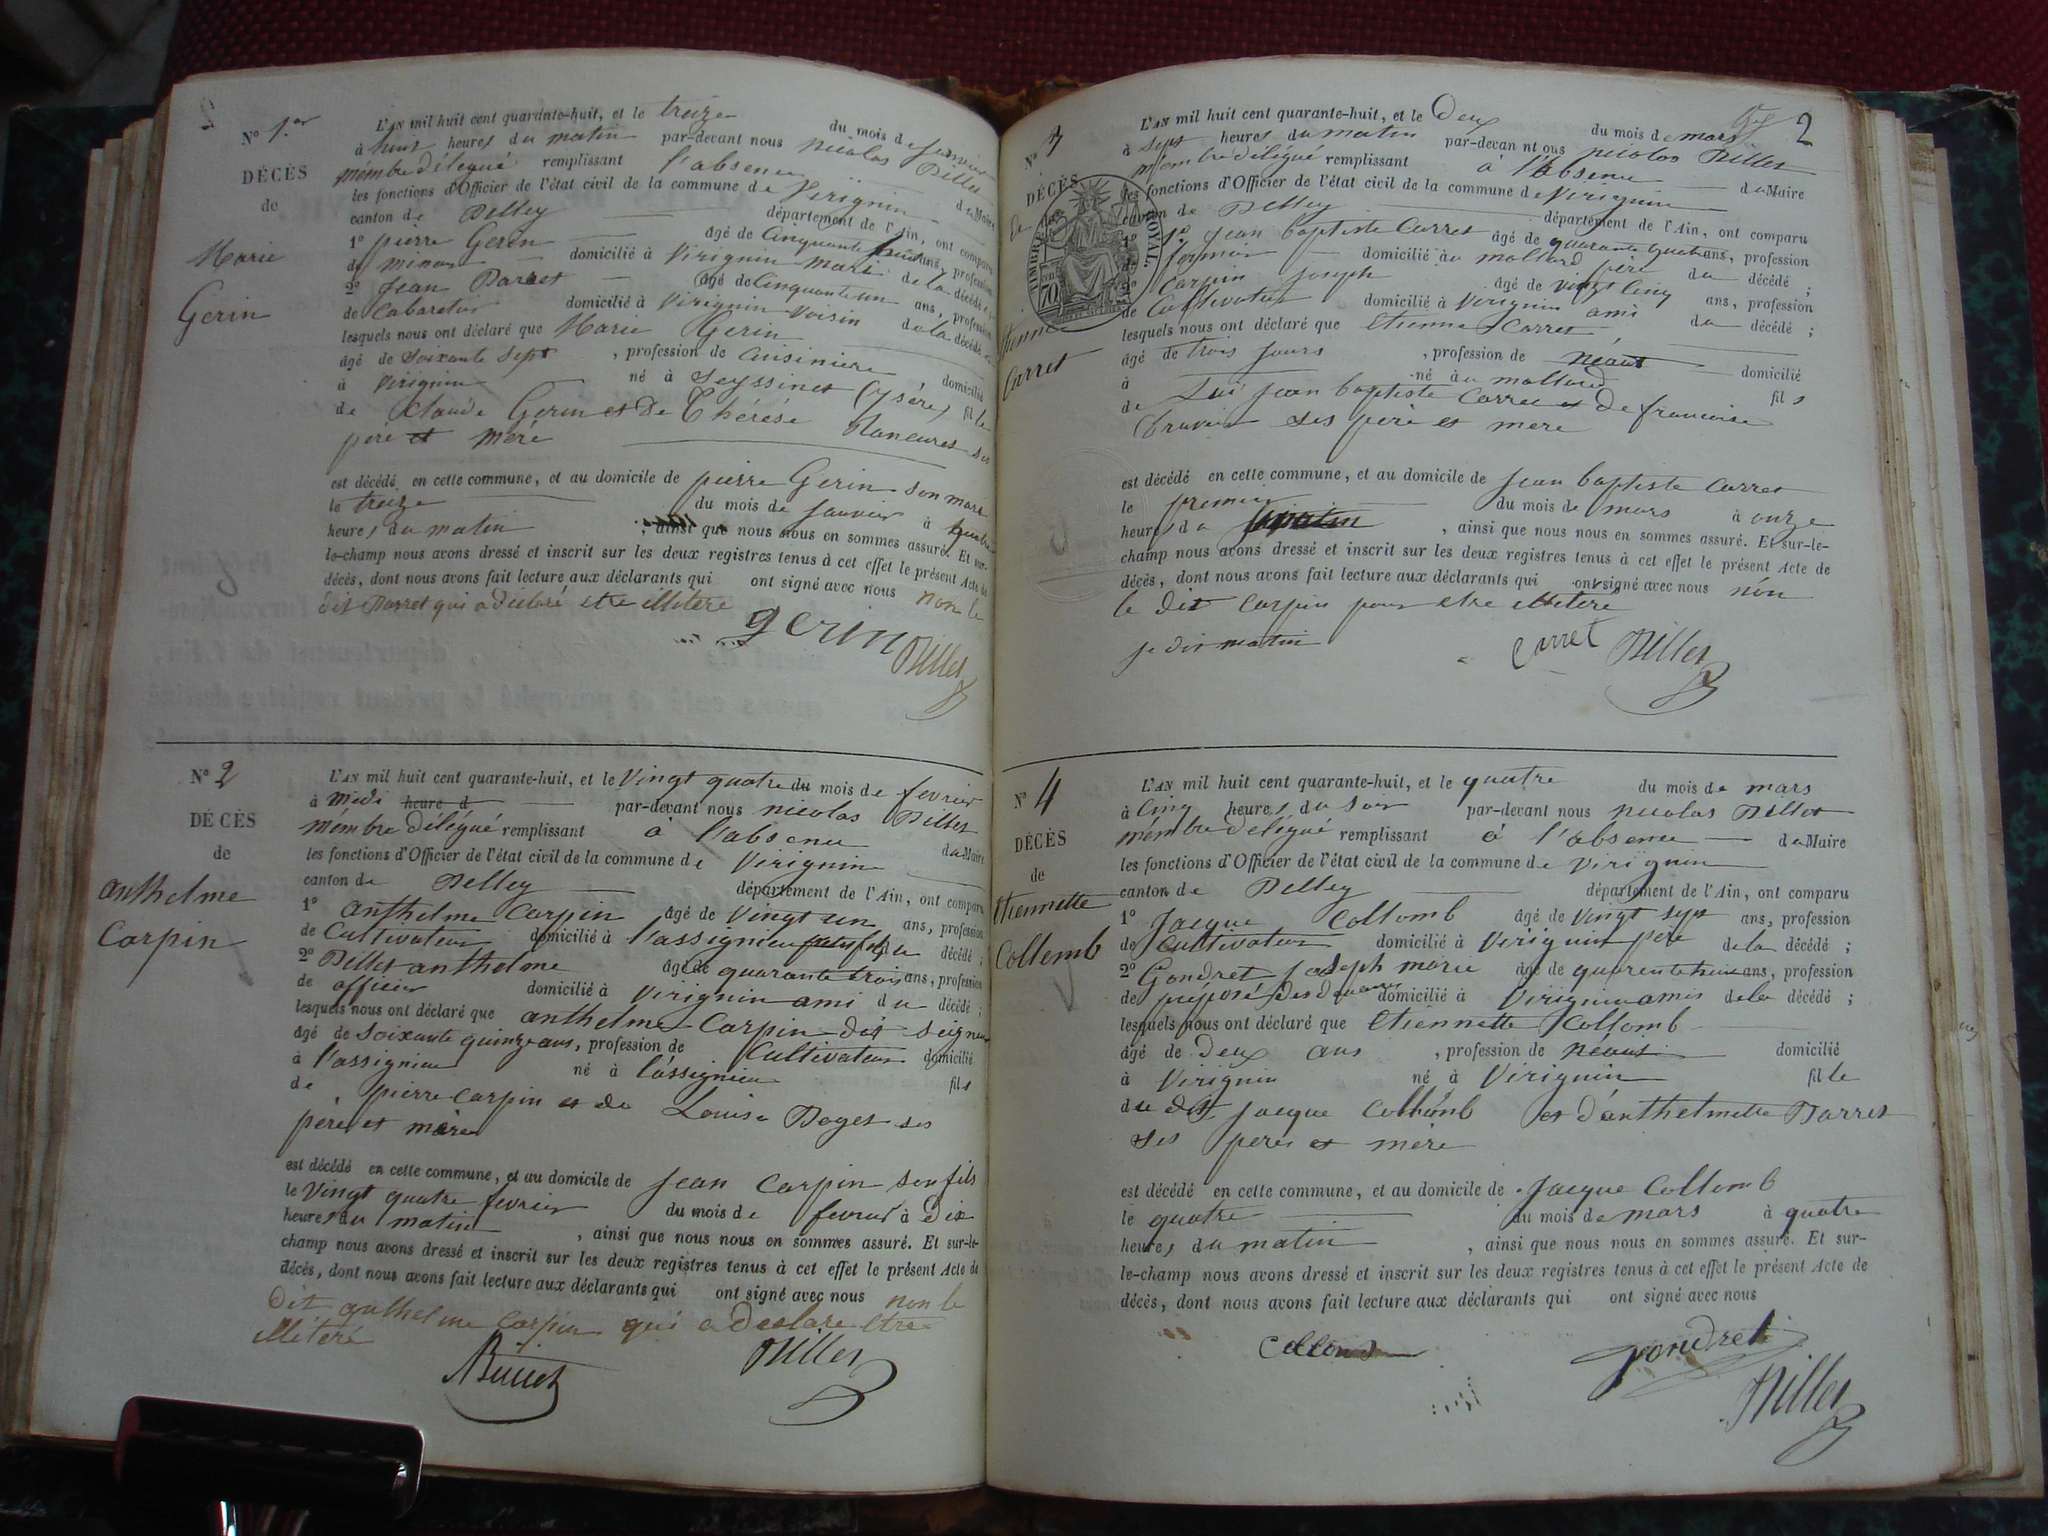 N° 1.er
DÉCÈS
de
Marie
Gerin
L'AN mil huit cent quarante-huit, et le treize du mois de janvier
à huit heures du matin par-devant nous nicolas Billet
mémbre délégué remplissant l'absence du Maire
les fonctions d'Officier de l'état civil de la commune de Virignin
canton de Belley département de l'Ain, ont comparu
1° pierre Gerin âgé de Cinquante ans, profession
de domicilié à Virignin mari de la décédée
2° Jean Barret âgé de Cinquante un ans, profession
de Cabaretier domicilié à Virignin Voisin de la décédée
lesquels nous ont déclaré que Marie Gerin
âgé de soixante sept, profession de Cuisiniere domicilié
à Virignin né à Seyssinet (ysére) fille
de Claude Gerin et De Thérése ses
péré et méré
est décédé en cette commune, et au domicile de pierre Gerin son mari
le treize du mois de janvier à quatre
heures du matin, ainsi que nous nous en sommes assuré. Et sur-
le-champ nous avons dressé et inscrit sur les deux registres tenus à cet effet le présent Acte de
décès, dont nous avons fait lecture aux déclarants qui ont signé avec nous non le
dit Barret qui a déclaré etre illiteré
gerin Billet
N° 2
DÉCÈS
de
anthelme
Carpin
L'AN mil huit cent quarante-huit, et le Vingt quatre du mois de fevrier
à midi heure d par-devant nous nicolas Billet
mémbre délégué remplissant à l'absence du Maire
les fonctions d'Officier de l'état civil de la commune de Virignin
canton de Belley département de l'Ain, ont comparu
1° anthelme Carpin âgé de Vingt un ans, profession
de Cultivateur domicilié à l'assignieu petit fils du décédé;
2° Billet anthelme âgé de quarante trois ans, profession
de officier domicilié à Virignin ami du décédé;
lesquels nous ont déclaré que anthelme Carpin dit seigneur
âgé de soixante quinze ans, profession de Cultivateur domicilié
à l'assignieu né à l'assignieu fils
de pierre Carpin et de Louise Boget ses
père et mère
est décédé en cette commune, et au domicile de Jean Carpin son fils
le Vingt quatre fevrier du mois de fevrier à dix
heures du matin, ainsi que nous nous en sommes assuré. Et sur-le-
champ nous avons dressé et inscrit sur les deux registres tenus à cet effet le présent Acte de
décès, dont nous avons fait lecture aux déclarants qui ont signé avec nous non le
Dit anthelme Carpin qui a declare etre
illiteré
Billet
2
N° 3
DÉCÈS
de
TIMBRE ROYAL
70
Etienne
Carret
L'AN mil huit cent quarante-huit, et le Deux du mois de mars
à sept heures du matin par-devant nous nicolas Billet
mémbre délégué remplissant à l'absence du Maire
les fonctions d'Officier de l'état civil de la commune de Virignin
canton de Belley département de l'Ain, ont comparu
1° Jean baptiste Carret âgé de quarante quatre ans, profession
de fermier domicilié au mollard père du décédé;
2° Carpin Joseph âgé de vingt cinq ans, profession
de Cultivateur domicilié à Virignin ami du décédé;
lesquels nous ont déclaré que Etienne Carret
âgé de trois jours, profession de néant domicilié
à né au mollard fils
de Jean baptiste Carret et De francoise
ses père et mere
est décédé en cette commune, et au domicile de Jean baptiste Carret
le premier du mois de mars à onze
heures du matin, ainsi que nous nous en sommes assuré. Et sur-le-
champ nous avons dressé et inscrit sur les deux registres tenus à cet effet le présent Acte de
décès, dont nous avons fait lecture aux déclarants qui ont signé avec nous nón
le dit Carpin pour etre illiteré
je dis matin
Carret Billet
N° 4
DÉCÈS
de
Etiennette
Collomb
L'AN mil huit cent quarante-huit, et le quatre du mois de mars
à Cinq heures du soir par-devant nous nicolas Billet
mémbre délégué remplissant à l'absence du Maire
les fonctions d'Officier de l'état civil de la commune de Virignin
canton de Belley département de l'Ain, ont comparu
1° Jacque Collomb âgé de Vingt sept ans, profession
de Cultivateur domicilié à Virignin père de la décédé;
2° Gondret Joseph marie âgé de quarente ans, profession
de préposé des douanes domicilié à Virignin amis de la décédé;
lesquels nous ont déclaré que Etiennette Collomb
âgé de Deux ans, profession de néant domicilié
à Virignin né à Virignin fille
du dit Jacque Collomb et d'anthelmette Barret
ses peres et mère
est décédé en cette commune, et au domicile de Jacque Collomb
le quatre du mois de mars à quatre
heures du matin, ainsi que nous nous en sommes assuré. Et sur-
le-champ nous avons dressé et inscrit sur les deux registres tenus à cet effet le présent Acte de
décès, dont nous avons fait lecture aux déclarants qui ont signé avec nous
gondret
Billet